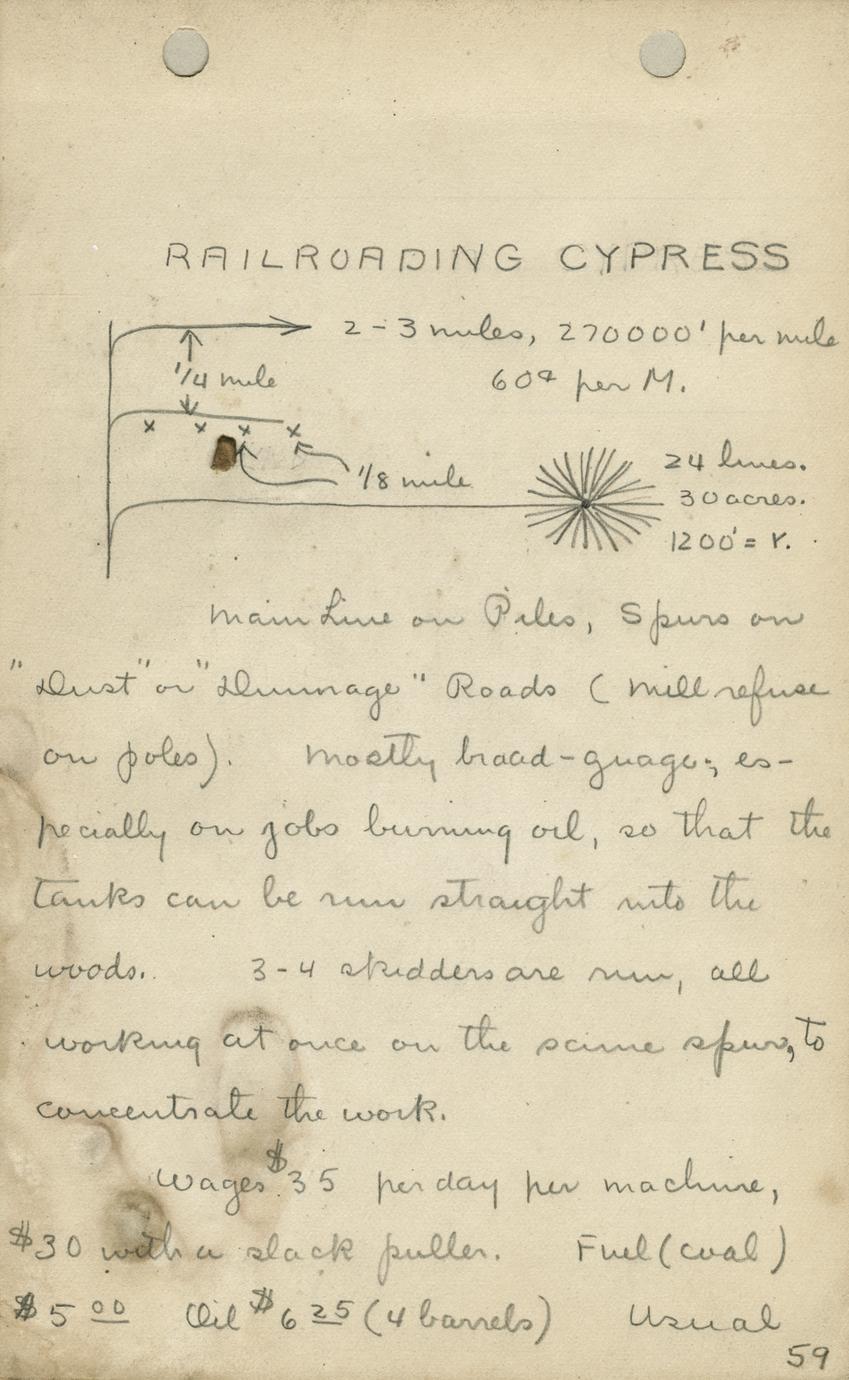 RAILROADING CYPRESS
2-3 miles, 270000' per mile
1/4 mile
60¢ per M.
x x x x
1/8 mile
24 lines.
30 acres.
1200' = r.
Main Line on Piles, Spurs on
"Dust" or "Dunnage" Roads (Mill refuse
on poles). Mostly broad-guage, es-
pecially on jobs burning oil, so that the
tanks can be run straight into the
woods. 3-4 skidders are run, all
working at once on the same spur, to
concentrate the work.
Wages $35 per day per machine,
$30 with a slack puller. Fuel (coal)
$5 00 Oil $6 25 (4 barrels) Usual
59